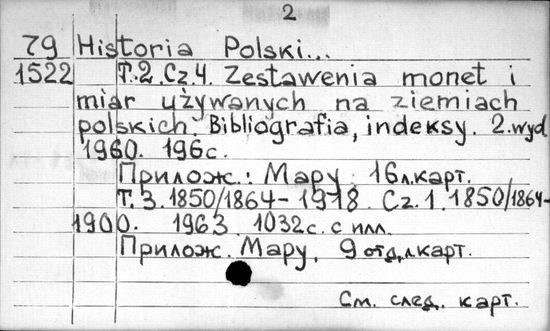 2
79 Historia Polski...
1522 T.2.Cz.4. Zestawenia monet i
miar używanych na ziemiach
polskich. Bibliografia, indeksy. 2.wyd
1960. 196с.
Прилож.: Mapy. 16л.карт.
T.3.1850/1864-1918. Cz.1.1850/1864-
1900. 1963. 1032с. с илл.
Прилож. Mapy, 9 отд.л.карт.
См. след. карт.